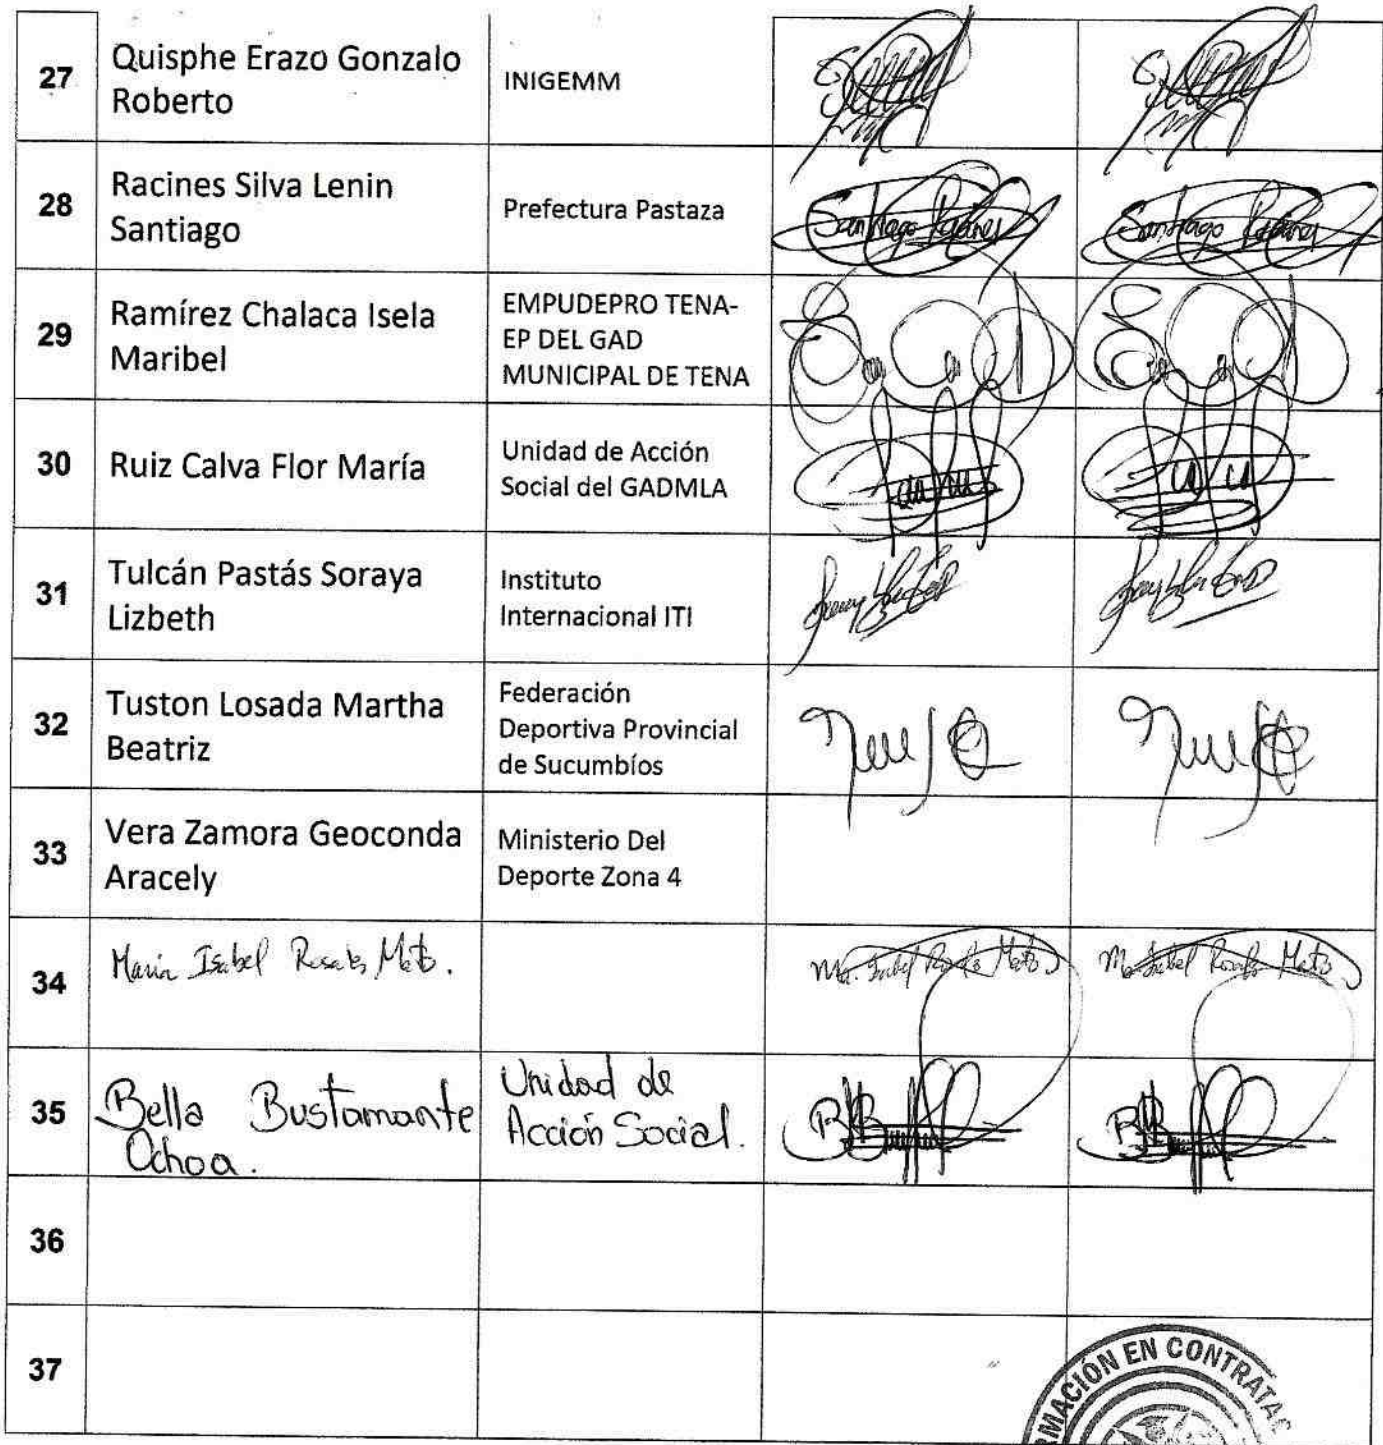 27
Quisphe Erazo Gonzalo
Roberto
INIGEMM
28
Racines Silva Lenin
Santiago
Prefectura Pastaza
Santiago Racines
Santiago Racines
29
Ramírez Chalaca Isela
Maribel
EMPUDEPRO TENA-
EP DEL GAD
MUNICIPAL DE TENA
30
Ruiz Calva Flor María
Unidad de Acción
Social del GADMLA
31
Tulcán Pastás Soraya
Lizbeth
Instituto
Internacional ITI
32
Tuston Losada Martha
Beatriz
Federación
Deportiva Provincial
de Sucumbíos
33
Vera Zamora Geoconda
Aracely
Ministerio Del
Deporte Zona 4
34
Maria Isabel Rosales
35
Bella Bustamante
Ochoa.
Unidad de
Acción Social.
36
37
EN